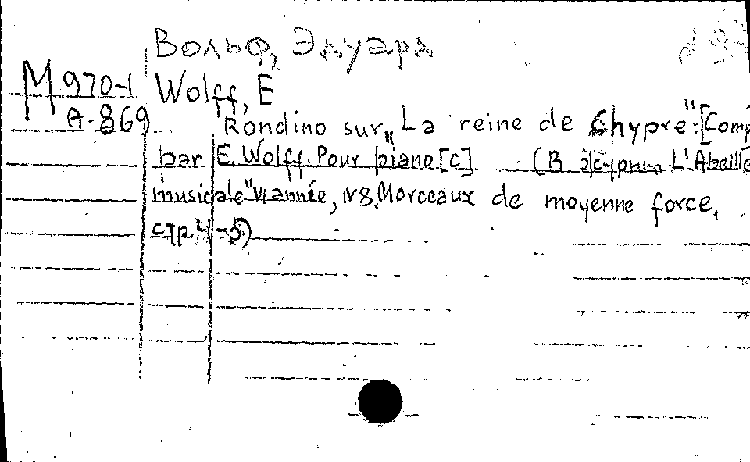 Вольф, Эдуард
М 970-1 Wolff, E
А-869 Rondino sur „La reine de Chypre": [Comp
par E. Wolff. Pour piano [C] (В журн. L'Abeille
musicale" VI année, N8. Morceaux de moyenne force,
стр. 4-5)